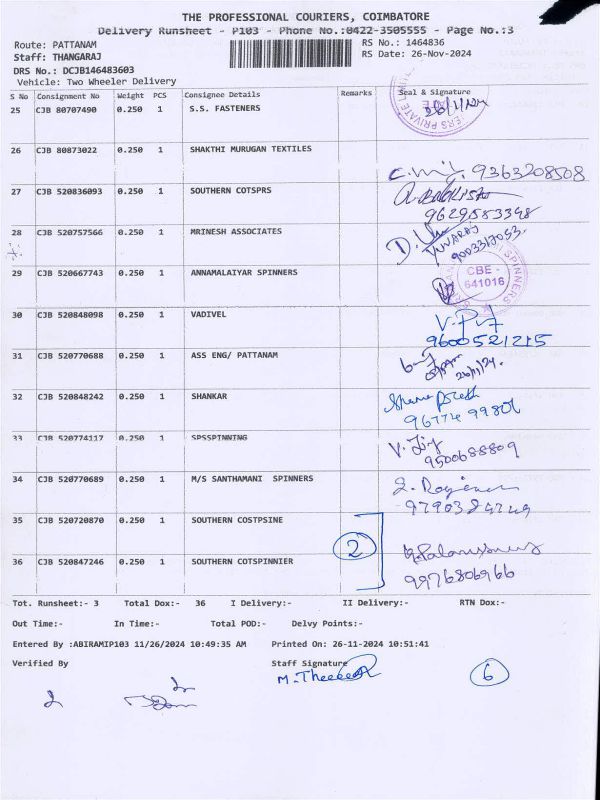 THE PROFESSIONAL COURIERS, COIMBATORE
Delivery Runsheet - P103 - Phone No.:0422-3505555 - Page No.:3
Route: PATTANAM RS No.: 1464836
Staff: THANGARAJ RS Date: 26-Nov-2024
DRS No.: DCJB146483603
Vehicle: Two Wheeler Delivery
S No Consignment No Weight PCS Consignee Details Remarks Seal & Signature
25 CJB 80707490 0.250 1 S.S. FASTENERS 26/11/24
26 CJB 80873022 0.250 1 SHAKTHI MURUGAN TEXTILES 9363208508
27 CJB 520836093 0.250 1 SOUTHERN COTSPRS 9629583348
28 CJB 520757566 0.250 1 MRINESH ASSOCIATES YUVARAJ
29 CJB 520667743 0.250 1 ANNAMALAIYAR SPINNERS SPINNERS CBE - 641016
30 CJB 520848098 0.250 1 VADIVEL 9600521215
31 CJB 520770688 0.250 1 ASS ENG/ PATTANAM 26/11/24.
32 CJB 520848242 0.250 1 SHANKAR
33 CJB 520774117 0.250 1 SPSSPINNING 9500688809
34 CJB 520770689 0.250 1 M/S SANTHAMANI SPINNERS
35 CJB 520720870 0.250 1 SOUTHERN COSTPSINE
2
36 CJB 520847246 0.250 1 SOUTHERN COTSPINNIER 9976806966
Tot. Runsheet:- 3 Total Dox:- 36 I Delivery:- II Delivery:- RTN Dox:-
Out Time:- In Time:- Total POD:- Delvy Points:-
Entered By :ABIRAMIP103 11/26/2024 10:49:35 AM Printed On: 26-11-2024 10:51:41
Verified By Staff Signature
6